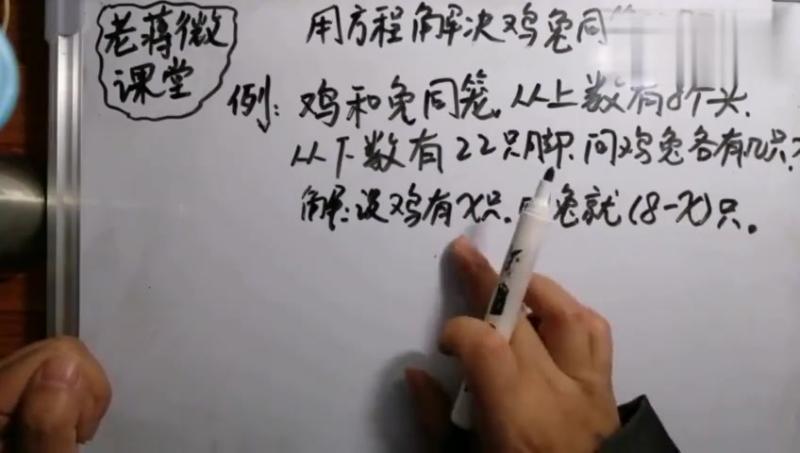 老蒋微
课堂
用方程解决鸡兔同
例：鸡和兔同笼，从上数有8个头.
从下数有22只脚.问鸡兔各有几只?
解：设鸡有x只. 兔就(8-x)只。